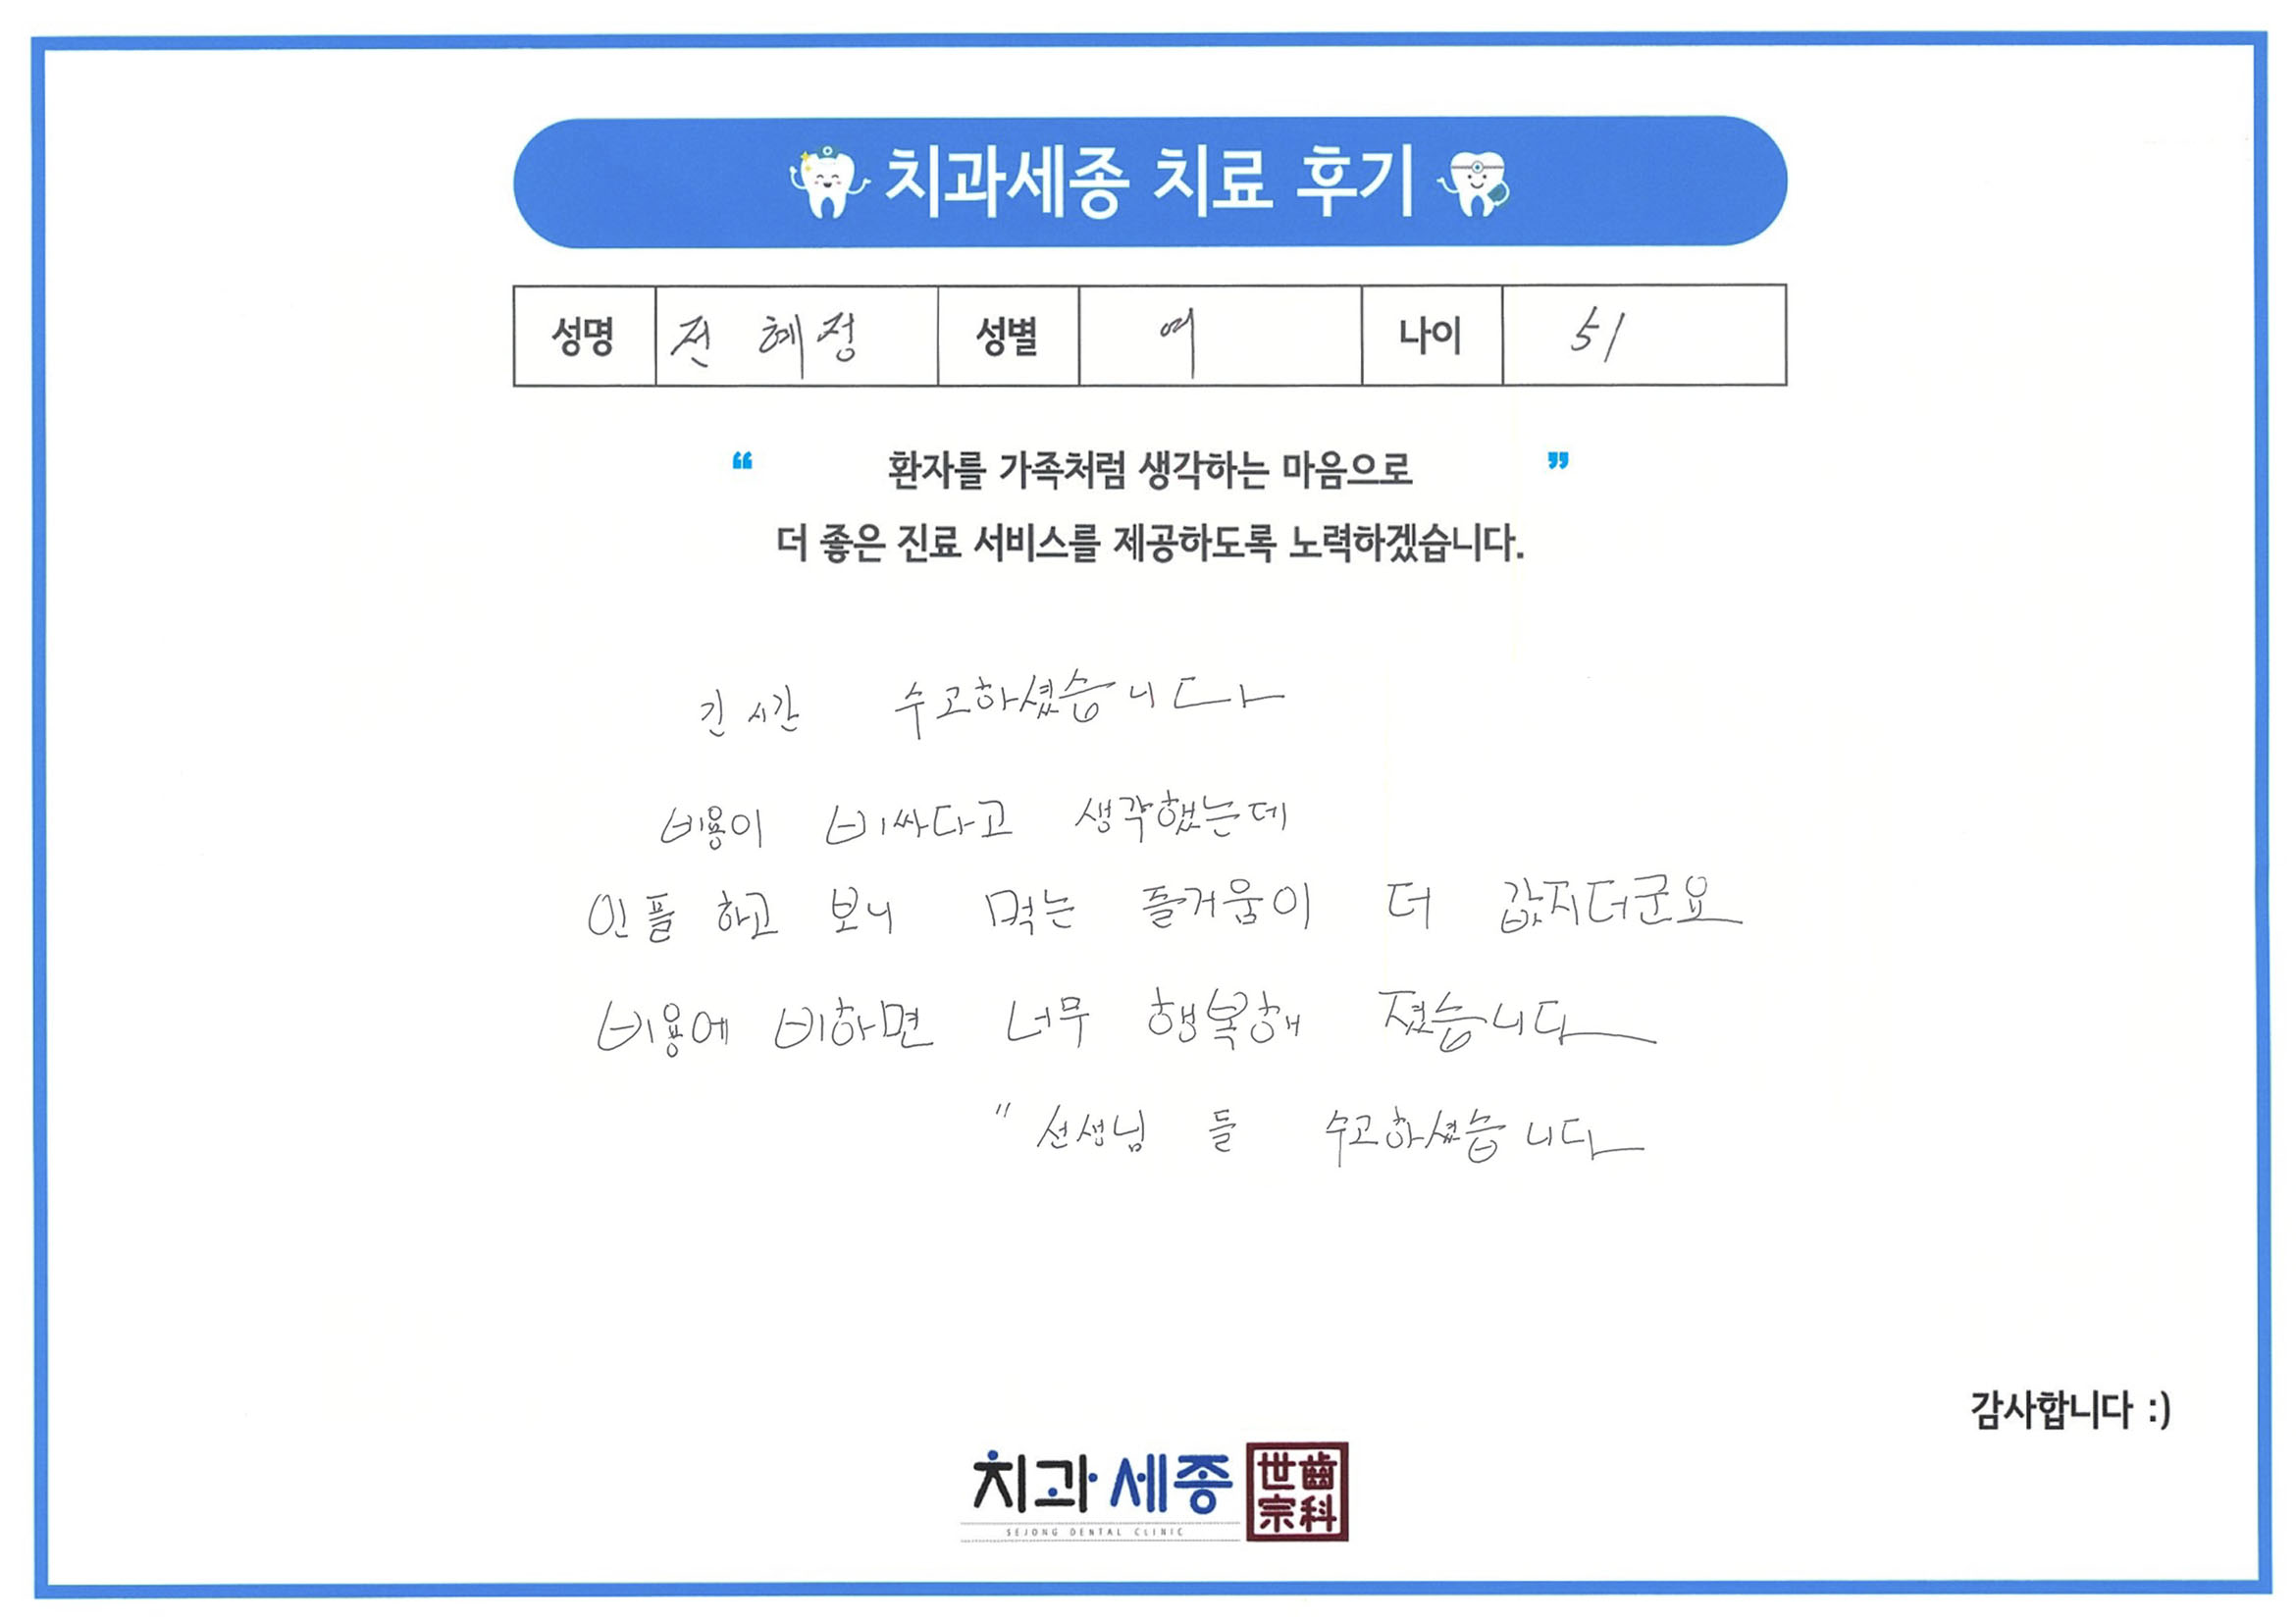 치과세종 치료 후기
성명 전혜정 성별 여 나이 51
“ 환자를 가족처럼 생각하는 마음으로 ”
더 좋은 진료 서비스를 제공하도록 노력하겠습니다.
긴 시간 수고하셨습니다
비용이 비싸다고 생각했는데
인플 하고 보니 먹는 즐거움이 더 값지더군요
비용에 비하면 너무 행복해 졌습니다
" 선생님 들 수고하셨습니다
감사합니다 :)
치과세종 世齒
宗科
SEJONG DENTAL CLINIC